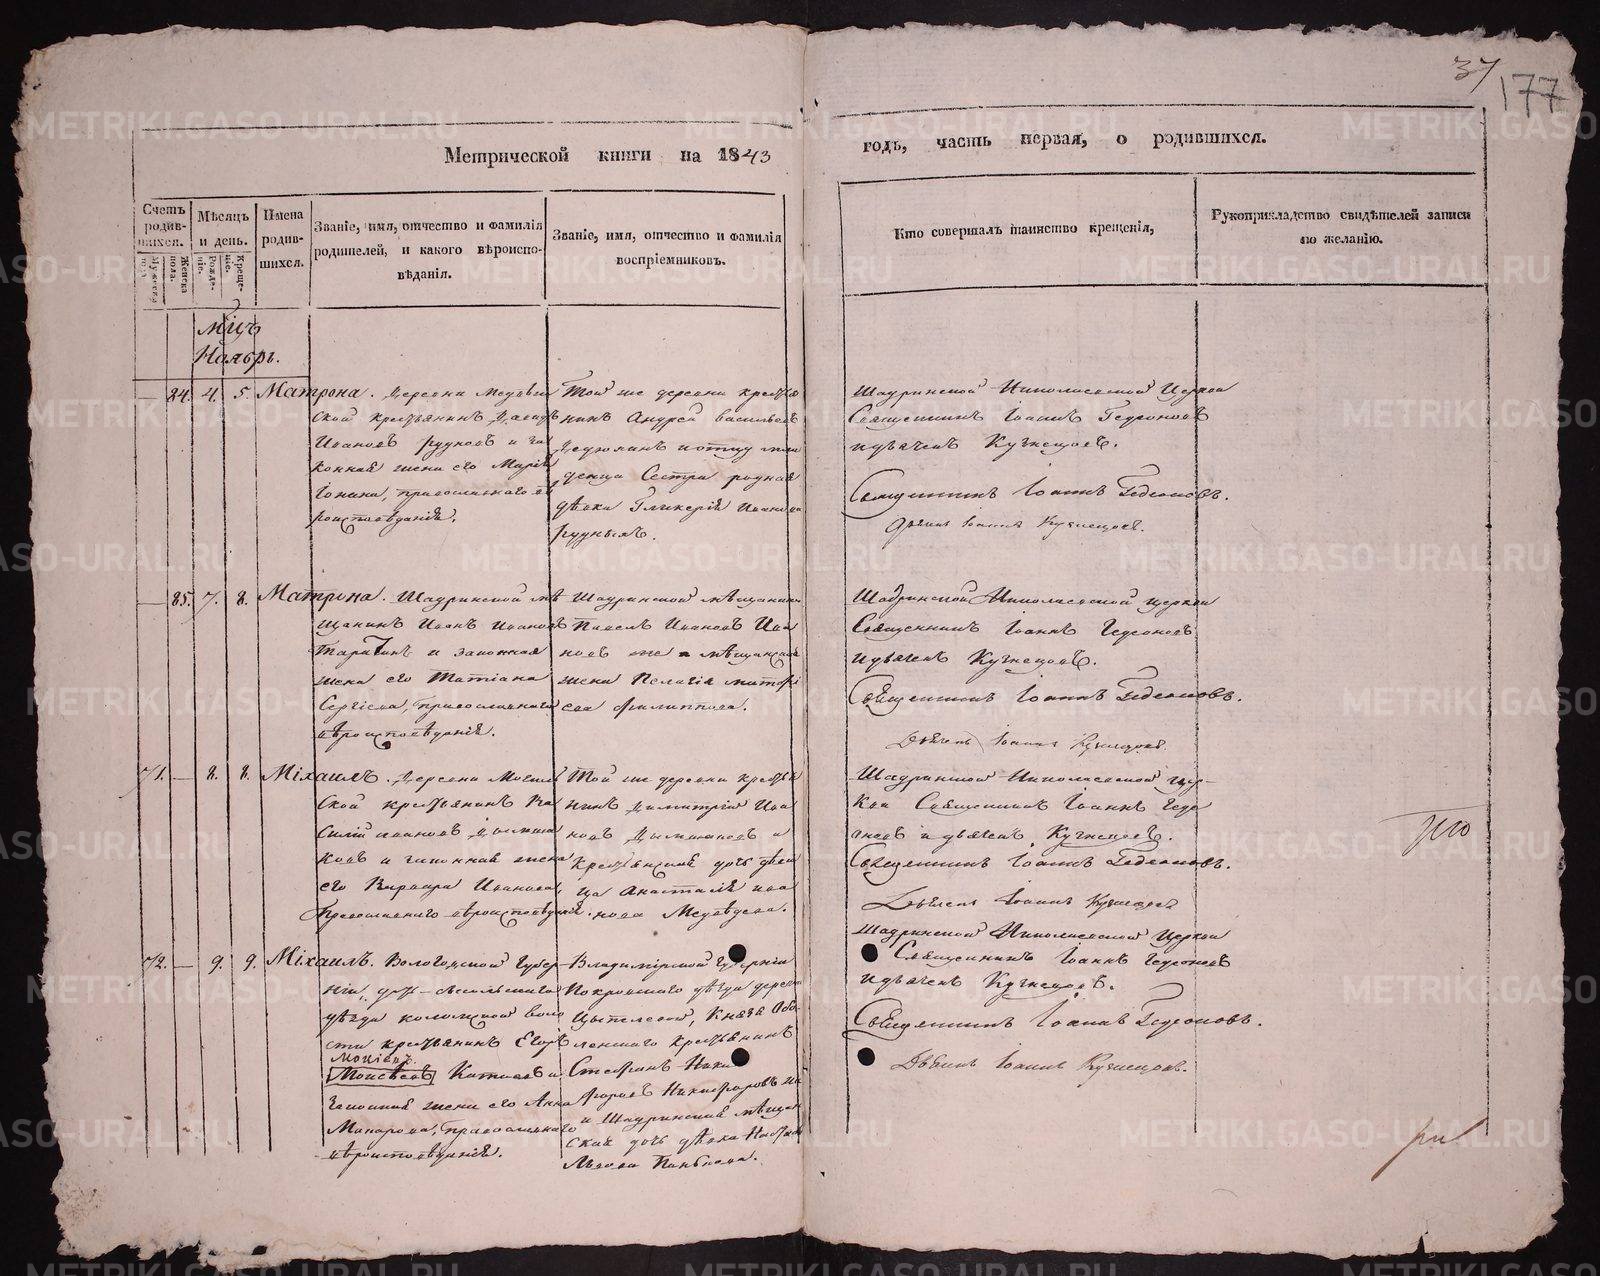 37
177
Метрической книги на 1843
годъ, часть первая, о родившихся.
Счетъ родив-шихся.
Мужеска пола.
Женска пола.
Мѣсяцъ и день.
Рожде-нія.
Креще-нія.
Имена родив-шихся.
Званіе, имя, отчество и фамилія
родителей, и какого вѣроиспо-
вѣданія.
Званіе, имя, отчество и фамилія
воспріемниковъ.
Кто совершалъ таинство крещенія,
Рукоприкладство свидѣтелей записи
по желанію.
Мцъ
Ноябрь.
84. 4. 5. Матрона. Деревни
ской крестьянинъ Давидъ
Ивановъ Рудновъ и за
конная жена его Марія
Іонина, православнаго вѣ
роисповѣданія.
Той же деревни крестья
нинъ Андрей Васильевъ
и отцу мла
денца Сестра родная
дѣвка Гликерія Иванова
Рудныхъ.
Шадринской Николаевской Церкви
Священникъ Іоаннъ Гедеоновъ
и дьячекъ Кузнецовъ.
Священникъ Іоаннъ Гедеоновъ.
Дьячекъ Іоаннъ Кузнецовъ.
85. 7. 8. Матрона. Шадринской мѣ
щанинъ Иванъ Ивановъ
и законная
жена его Татіана
Сергіева, православнаго
вѣроисповѣданія.
Шадринской мѣщанинъ
Павелъ Ивановъ Ива
новъ же мѣщанская
жена Пелагія
ева Филиппова.
Шадринской Николаевской церкви
Священникъ Іоаннъ Гедеоновъ
и дьячекъ Кузнецовъ.
Священникъ Іоаннъ Гедеоновъ.
Дьячекъ Іоаннъ Кузнецовъ.
71. — 8. 8. Міхаилъ. Деревни
ской крестьянинъ Ва
силій
ковъ и законная жена
его Варвара Иванова,
Православнаго вѣроисповѣданія.
Той же деревни крестья
нинъ Димитрій Ива
новъ и
крестьянская дочь дѣви
ца Анастасія Ива
нова Медвѣдева.
Шадринской Николаевской цер-
кви Священникъ Іоаннъ Геде
оновъ и дьячекъ Кузнецовъ.
Священникъ Іоаннъ Гедеоновъ.
Дьячекъ Іоаннъ Кузнецовъ
72. — 9. 9. Міхаилъ. Вологодской Губер
ніи, Усть-Сысольскаго
уѣзда воло
сти крестьянинъ Егоръ
Мокіевъ.
Моисѣевъ и
Законная жена его Анна
Макарова, православнаго
вѣроисповѣданія.
Владимірской Губерніи
Покровскаго уѣзда деревни
Князя Обо
ленскаго Крестьянинъ
Стефанъ Ники
форовъ Никифоровъ
и Шадринская мѣщан
ская дочь дѣвка
Львова
Шадринской Николаевской Церкви
Священникъ Іоаннъ Гедеоновъ
и дьячекъ Кузнецовъ.
Священникъ Іоаннъ Гедеоновъ.
Дьячекъ Іоаннъ Кузнецовъ.
METRIKI.GASO-URAL.RU